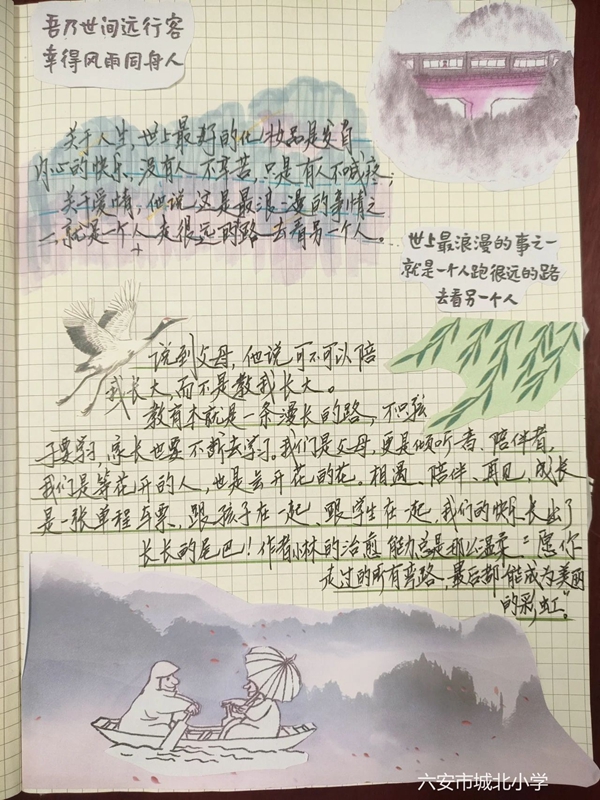 吾乃世间远行客
幸得风雨同舟人
关于人生,世上最好的化妆品是发自
内心的快乐、没有人不辛苦,只是有人不喊疼;
关于爱情,他说这是最浪漫的事情之
一,就是一个人走很远的路去看另一个人。
世上最浪漫的事之一
就是一个人跑很远的路
去看另一个人
说到父母,他说可不可以陪
我长大,而不是教我长大。
教育本就是一条漫长的路,不只孩
子要学习,家长也要不断去学习。我们是父母,更是倾听者、陪伴者,
我们是等花开的人,也是会开花的花。相遇、陪伴、再见,成长
是一张单程车票、跟孩子在一起、跟学生在一起,我们的快乐长出了
长长的尾巴!作者小林的治愈能力总是那么温柔:“愿你
走过的所有弯路,最后都能成为美丽
的彩虹。”
六安市城北小学